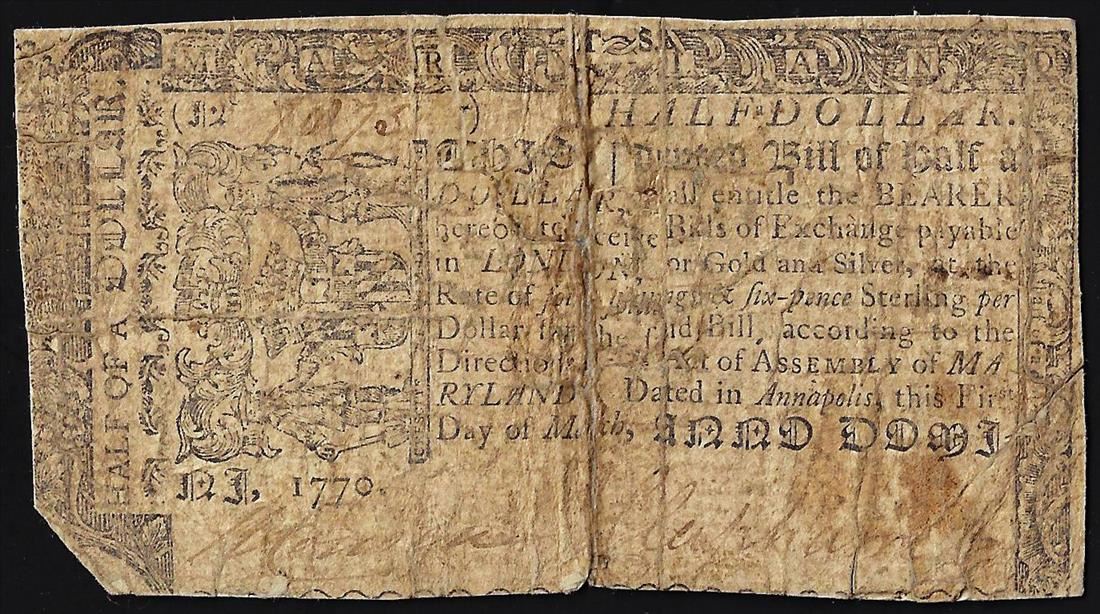 M A R Y L A N D
T S.
HALF OF A DOLLAR.
(N
HALF a DOLLAR.
THIS Indented Bill of Half a
DOLLAR, shall entitle the BEARER
hereof to receive Bills of Exchange payable
in LONDON, or Gold and Silver, at the
Rate of four Shillings & six-pence Sterling per
Dollar for the said Bill, according to the
Directions of Act of ASSEMBLY of MA-
RYLAND. Dated in Annapolis, this First
Day of March, ANNO DOMI-
NI, 1770.